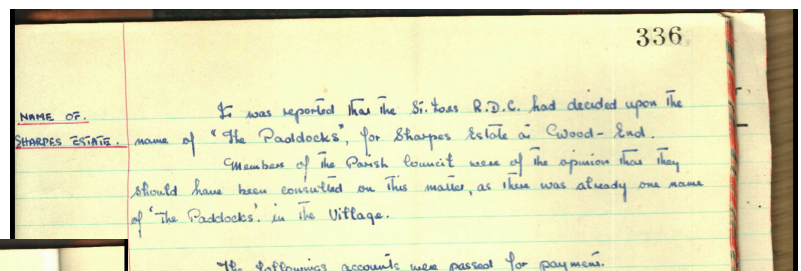 336
NAME OF.
SHARPES ESTATE.
It was reported that the St. Ives R.D.C. had decided upon the
name of "The Paddocks", for Sharpes Estate at Wood-End.
Members of the Parish Council were of the opinion that they
should have been consulted on this matter, as there was already one name
of "The Paddocks". in the Village.
The followings accounts were passed for payment.